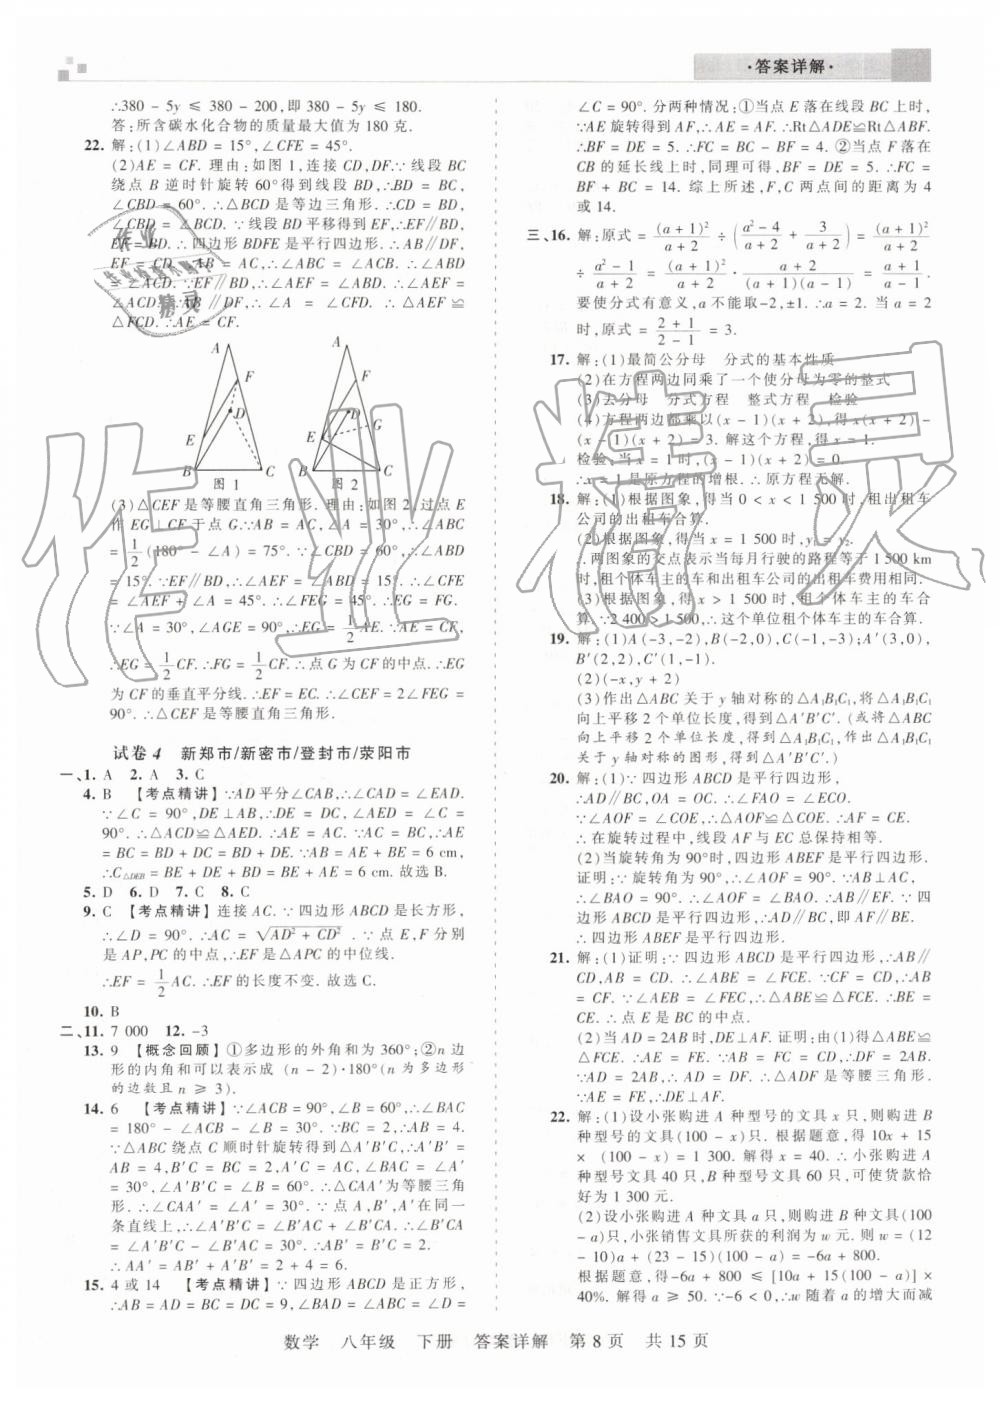 ·答案详解·
∴380 - 5y ≤ 380 - 200,即 380 - 5y ≤ 180.
答:所含碳水化合物的质量最大值为 180 克.
22. 解:(1)∠ABD = 15°,∠CFE = 45°.
(2)AE = CF. 理由:如图 1,连接 CD,DF.∵ 线段 BC
绕点 B 逆时针旋转 60°得到线段 BD,∴BD = BC,
∠CBD = 60°.∴△BCD 是等边三角形.∴CD = BD,
∠CBD = ∠BCD.∵ 线段 BD 平移得到 EF,∴EF∥BD,
EF = BD.∴ 四边形 BDFE 是平行四边形.∴AB∥DF,
EF = CD.∵AB = AC,∴∠ABC = ∠ACB.∴∠ABD
= ∠ACD.∵EF∥BD,∴∠AEF = ∠ABD.∴∠AEF =
∠ACD.∵AB∥DF,∴∠A = ∠CFD.∴△AEF≌
△FCD.∴AE = CF.
A F D E B C 图 1
A F D G E B C 图 2
(3)△CEF 是等腰直角三角形. 理由:如图 2,过点 E
作 EG⊥CF 于点 G.∵AB = AC,∠A = 30°,∴∠ABC
= 1/2 (180° - ∠A) = 75°.∵∠CBD = 60°,∴∠ABD
= 15°.∵EF∥BD,∴∠AEF = ∠ABD = 15°.∴∠CFE
= ∠AEF + ∠A = 45°.∴∠FEG = 45°.∴EG = FG.
∵∠A = 30°,∠AGE = 90°,∴EG = 1/2 AE.∵AE = CF,
∴EG = 1/2 CF.∴FG = 1/2 CF.∴点 G 为 CF 的中点.∴EG
为 CF 的垂直平分线.∴EF = EC.∴∠CEF = 2∠FEG =
90°.∴△CEF 是等腰直角三角形.
试卷 4 新郑市/新密市/登封市/荥阳市
一、1. A 2. A 3. C
4. B 【考点精讲】∵AD 平分∠CAB,∴∠CAD = ∠EAD.
∵∠C = 90°,DE⊥AB,∴DE = DC,∠AED = ∠C =
90°.∴△ACD≌△AED.∴AE = AC.∵AC = BC,∴AE
= BC = BD + DC = BD + DE.∵AB = AE + BE = 6 cm,
∴C△DEB = BE + DE + BD = BE + AE = 6 cm. 故选 B.
5. D 6. D 7. C 8. C
9. C 【考点精讲】连接 AC.∵ 四边形 ABCD 是长方形,
∴∠D = 90°.∴AC = √(AD² + CD²) .∵ 点 E,F 分别
是 AP,PC 的中点,∴EF 是△APC 的中位线.
∴EF = 1/2 AC.∴EF 的长度不变. 故选 C.
10. B
二、11. 7 000 12. -3
13. 9 【概念回顾】①多边形的外角和为 360°;②n 边
形的内角和可以表示成 (n - 2)·180°(n 为多边形
的边数且 n ≥ 3).
14. 6 【考点精讲】∵∠ACB = 90°,∠B = 60°,∴∠BAC
= 180° - ∠ACB - ∠B = 30°.∵BC = 2,∴AB = 4.
∵△ABC 绕点 C 顺时针旋转得到△A′B′C,∴A′B′ =
AB = 4,B′C = BC = 2,A′C = AC,∠BAC = ∠A′
= 30°,∠A′B′C = ∠B = 60°.∴△CAA′为等腰三角形.
∴∠CAA′ = ∠A′ = 30°.∵ 点 A,B′,A′在同一
条直线上,∴∠A′B′C = ∠B′AC + ∠B′CA.∴∠B′CA
= ∠A′B′C - ∠B′AC = 30°.∴B′A = B′C = 2.
∴AA′ = AB′ + A′B′ = 2 + 4 = 6.
15. 4 或 14 【考点精讲】∵ 四边形 ABCD 是正方形,
∴AB = AD = BC = DC = 9,∠BAD = ∠ABC = ∠D =
∠C = 90°. 分两种情况:①当点 E 落在线段 BC 上时,
∵AE 旋转得到 AF,∴AE = AF.∴Rt△ADE≌Rt△ABF.
∴BF = DE = 5.∴FC = BC - BF = 4. ②当点 F 落在
CB 的延长线上时,同理可得,BF = DE = 5.∴FC =
BF + BC = 14. 综上所述,F,C 两点间的距离为 4
或 14.
三、16. 解:原式 = (a + 1)²/(a + 2) ÷ ((a² - 4)/(a + 2) + 3/(a + 2)) = (a + 1)²/(a + 2)
÷ (a² - 1)/(a + 2) = (a + 1)²/(a + 2) · (a + 2)/((a + 1)(a - 1)) = (a + 1)/(a - 1)
要使分式有意义,a 不能取-2,±1.∴a = 2. 当 a = 2
时,原式 = (2 + 1)/(2 - 1) = 3.
17. 解:(1)最简公分母 分式的基本性质
(2)在方程两边同乘了一个使分母为零的整式
(3)去分母 分式方程 整式方程 检验
(4)方程两边都乘以(x - 1)(x + 2),得 x(x + 2) -
(x - 1)(x + 2) = 3. 解这个方程,得 x = 1.
检验:当 x = 1 时,(x - 1)(x + 2) = 0.
∴x = 1 是原方程的增根.∴原方程无解.
18. 解:(1)根据图象,得当 0 < x < 1 500 时,租出租车
公司的出租车合算.
(2)根据图象,得当 x = 1 500 时,y₁ = y₂.
∴两图象的交点表示当每月行驶的路程等于 1 500 km
时,租个体车主的车和出租车公司的出租车费用相同.
(3)根据图象,得 x > 1 500 时,租个体车主的车合
算.∵2 400 > 1 500,∴这个单位租个体车主的车合算.
19. 解:(1)A(-3,-2),B(-2,0),C(-1,-3);A′(3,0),
B′(2,2),C′(1,-1).
(2)(-x,y + 2)
(3)作出△ABC 关于 y 轴对称的△A₁B₁C₁,将△A₁B₁C₁
向上平移 2 个单位长度,得到△A′B′C′. (或将△ABC
向上平移 2 个单位长度,得到△A₁B₁C₁,作出△A₁B₁C₁
关于 y 轴对称的图形,得到△A′B′C′.)
20. 解:(1)∵ 四边形 ABCD 是平行四边形,
∴AD∥BC,OA = OC.∴∠FAO = ∠ECO.
∵∠AOF = ∠COE,∴△AOF≌△COE.∴AF = CE.
∴ 在旋转过程中,线段 AF 与 EC 总保持相等.
(2)当旋转角为 90°时,四边形 ABEF 是平行四边形.
证明:∵ 旋转角为 90°,∴∠AOF = 90°.∵AB⊥AC,
∴∠BAO = 90°.∴∠AOF = ∠BAO.∴AB∥EF.∵ 四
边形 ABCD 是平行四边形,∴AD∥BC,即 AF∥BE.
∴ 四边形 ABEF 是平行四边形.
21. 解:(1)证明:∵ 四边形 ABCD 是平行四边形,∴AB∥
CD,AB = CD.∴∠ABE = ∠FCE.∵CF = CD,∴AB
= CF.∵∠AEB = ∠FEC,∴△ABE≌△FCE.∴BE =
CE.∴点 E 是 BC 的中点.
(2)当 AD = 2AB 时,DE⊥AF. 证明:由(1)得△ABE≌
△FCE.∴AE = FE.∵AB = FC = CD,∴DF = 2AB.
∵AD = 2AB,∴AD = DF.∴△ADF 是等腰三角形.
∵AE = FE,∴DE⊥AF.
22. 解:(1)设小张购进 A 种型号的文具 x 只,则购进 B
种型号的文具(100 - x)只. 根据题意,得 10x + 15
× (100 - x) = 1 300. 解得 x = 40.∴小张购进 A
种型号文具 40 只,B 种型号文具 60 只,可使货款恰
好为 1 300 元.
(2)设小张购进 A 种文具 a 只,则购进 B 种文具(100
- a)只,小张销售文具所获的利润为 w 元. 则 w = (12
- 10)a + (23 - 15)(100 - a) = -6a + 800.
根据题意,得-6a + 800 ≤ [10a + 15(100 - a)] ×
40%. 解得 a ≥ 50.∵-6 < 0,∴w 随着 a 的增大而减
数学 八年级 下册 答案详解 第 8 页 共 15 页
作业精灵